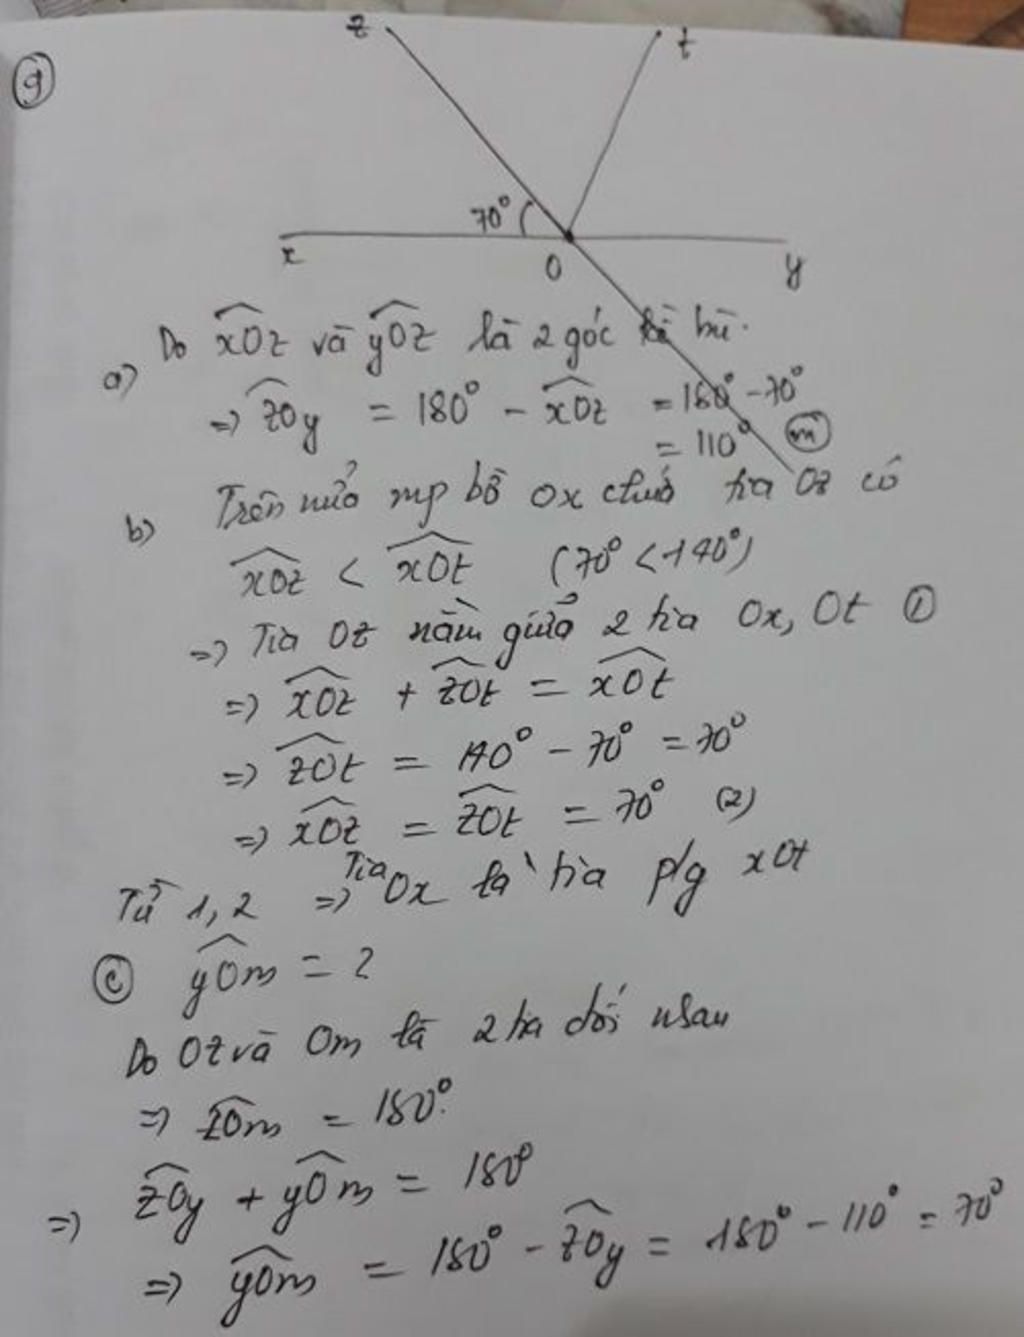 9
z
t
70°
x
O
y
a) Do xÔz và yÔz là 2 góc kề bù.
=> zÔy = 180° - xÔz = 180° - 70°
= 110°
m
b) Trên nửa mp bờ Ox chứa tia Oz có
xÔz < xÔt (70° < 140°)
=> Tia Oz nằm giữa 2 tia Ox, Ot ①
=> xÔz + zÔt = xÔt
=> zÔt = 140° - 70° = 70°
=> xÔz = zÔt = 70° (2)
Từ 1, 2 => Tia Ox là tia p/g xOt
ⓒ yÔm = ?
Do Oz và Om là 2 tia đối nhau
=> zÔm = 180°.
=> zÔy + yÔm = 180°
=> yÔm = 180° - zÔy = 180° - 110° = 70°